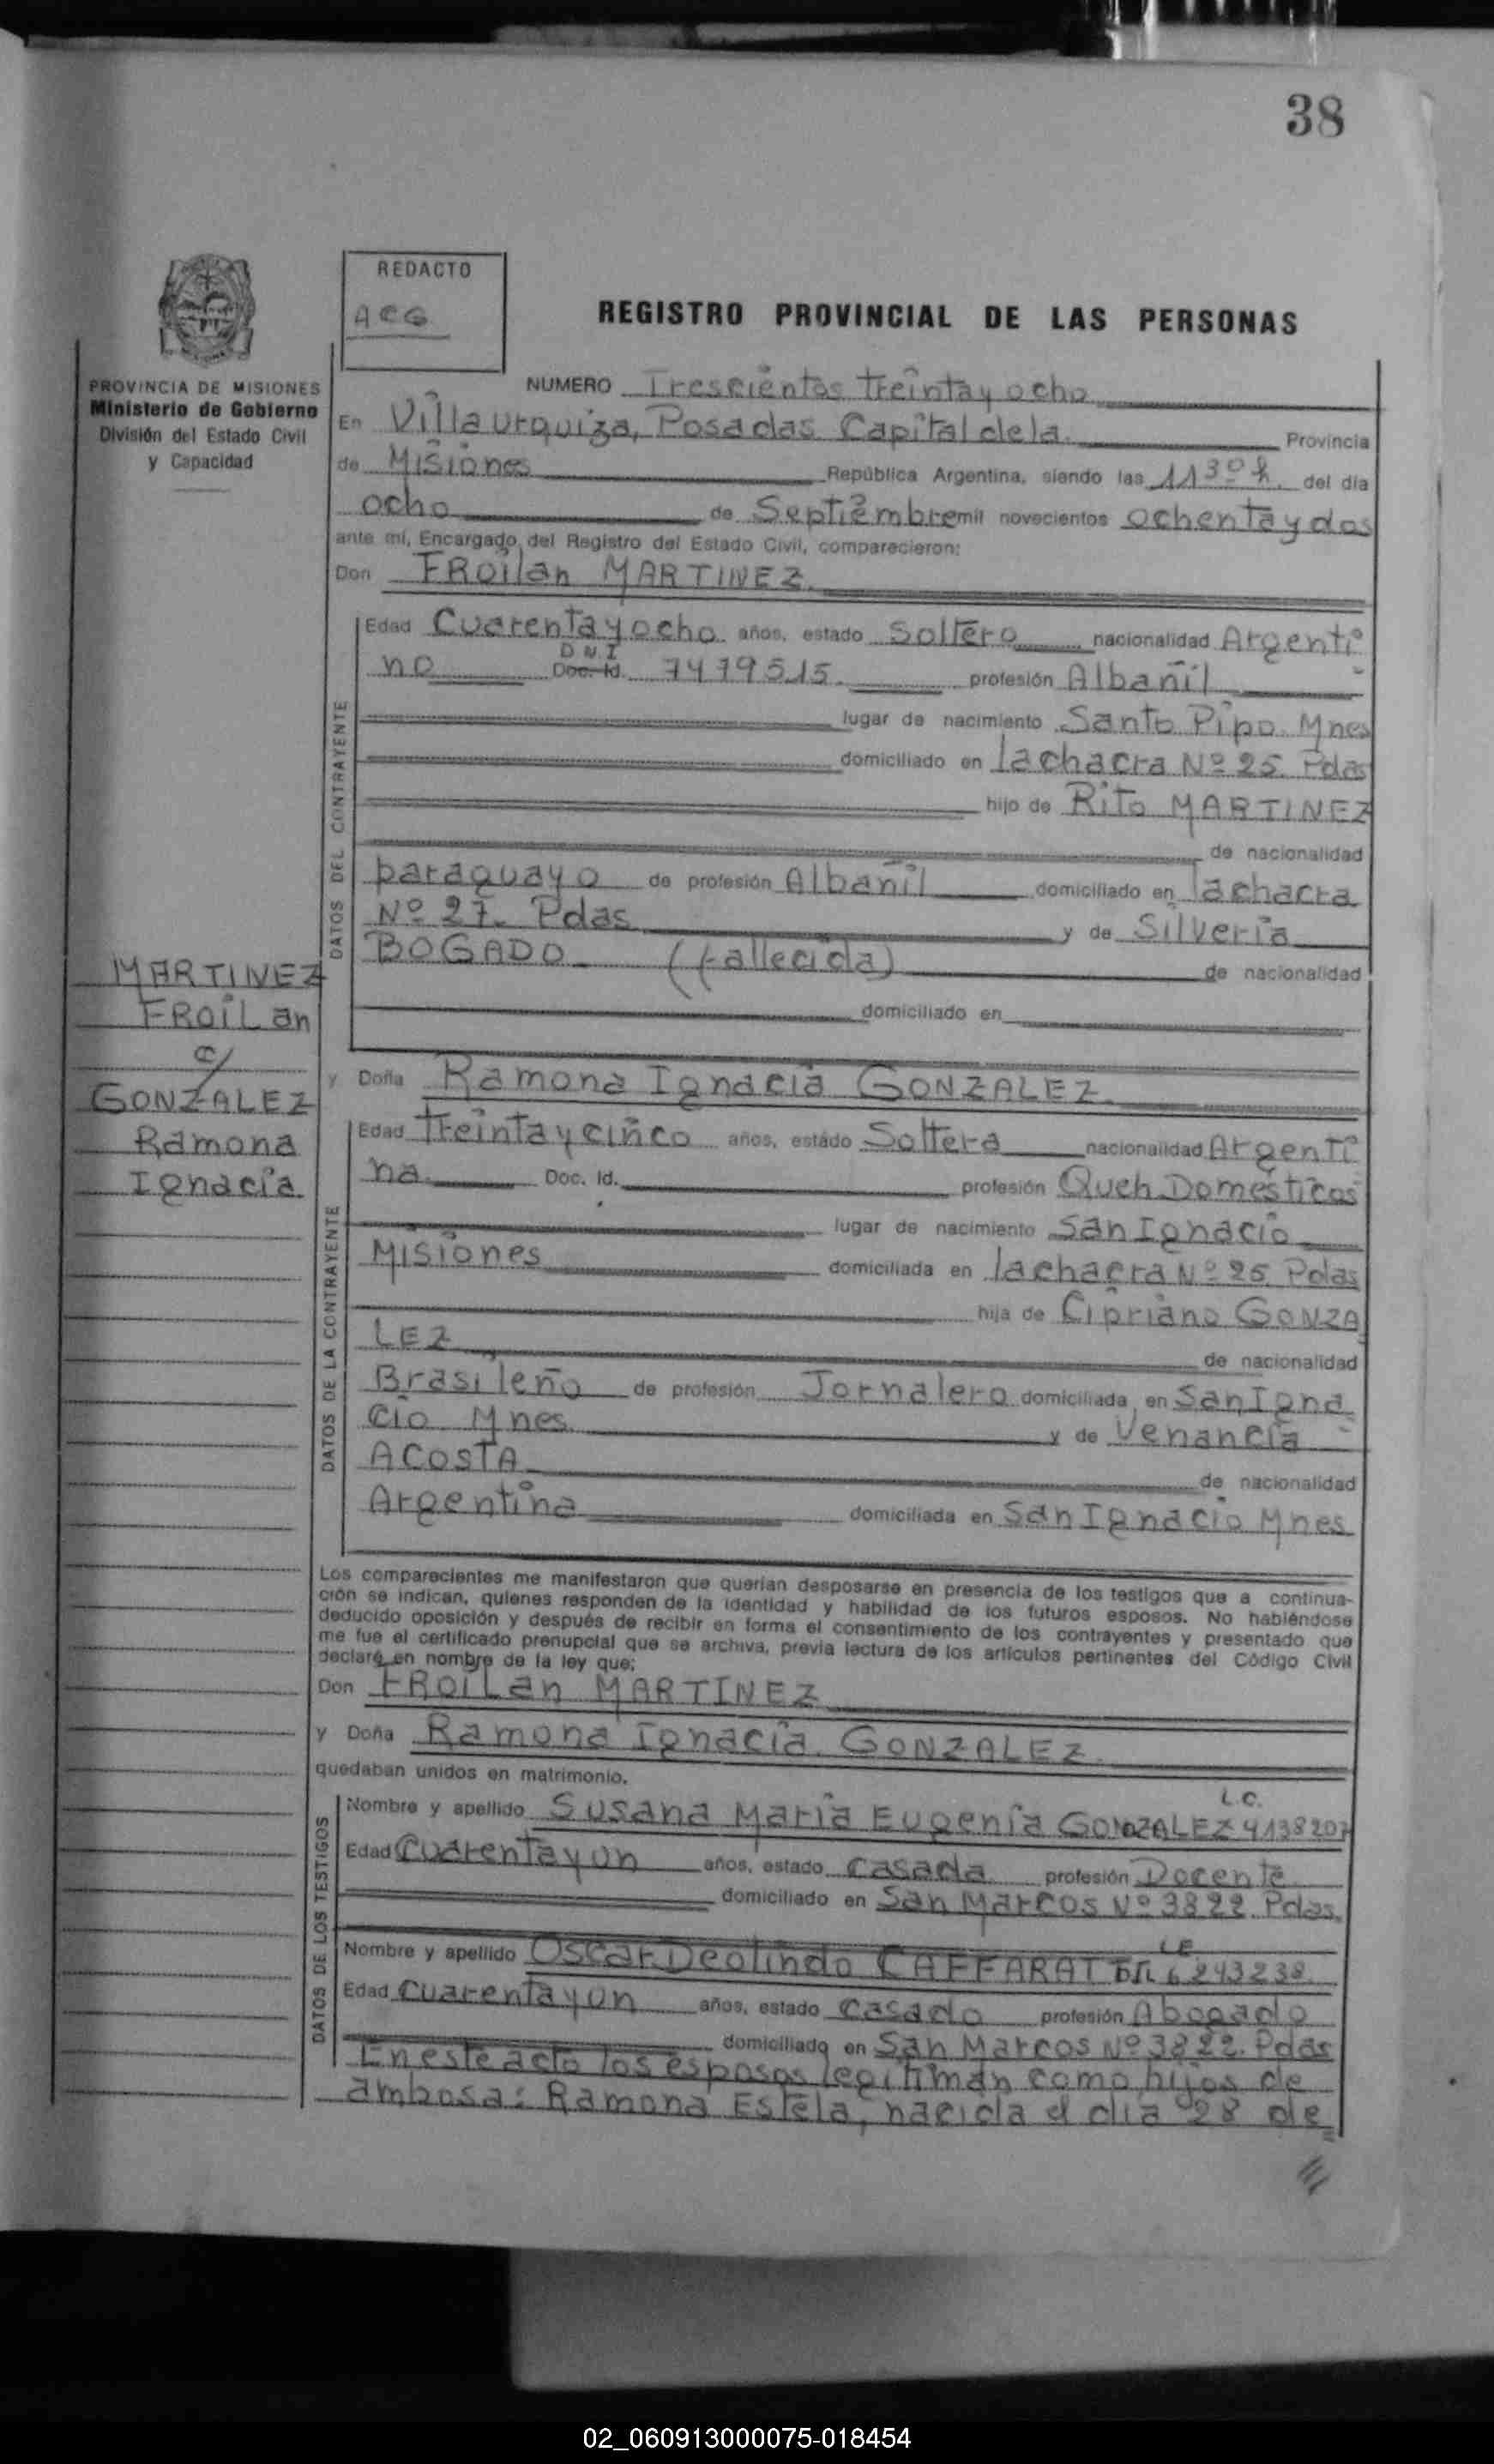 38
REDACTO
ACG
REGISTRO PROVINCIAL DE LAS PERSONAS
PROVINCIA DE MISIONES
Ministerio de Gobierno
División del Estado Civil
y Capacidad
NUMERO Trescientos treinta y ocho
En Villa Urquiza, Posadas Capital de la Provincia
de Misiones República Argentina, siendo las 11 30 h. del día
ocho de Septiembre mil novecientos ochenta y dos
ante mí, Encargado del Registro del Estado Civil, comparecieron:
Don FROilan MARTINEZ
Edad Cuarenta y ocho años, estado Soltero nacionalidad Argenti
D N I
no Doc. Id. 7479515 profesión Albañil
lugar de nacimiento Santo Pipo Mnes
domiciliado en la chacra Nº 25 Pdas
hijo de Rito MARTINEZ
de nacionalidad
paraguayo de profesión Albañil domiciliado en la chacra
Nº 27. Pdas y de Silveria
BOGADO (fallecida) de nacionalidad
domiciliado en
DATOS DEL CONTRAYENTE
MARTINEZ
FROILan
c/
GONZALEZ
Ramona
Ignacia
y Doña Ramona Ignacia GONZALEZ
Edad treinta y cinco años, estado Soltera nacionalidad Argenti
na Doc. Id. profesión Queh. Domésticos
lugar de nacimiento San Ignacio
Misiones domiciliada en la chacra Nº 25 Pdas
hija de Cipriano GONZA
LEZ de nacionalidad
Brasileño de profesión Jornalero domiciliada en San Igna
cio Mnes y de Venancia
ACOSTA de nacionalidad
Argentina domiciliada en San Ignacio Mnes
DATOS DE LA CONTRAYENTE
Los comparecientes me manifestaron que querían desposarse en presencia de los testigos que a continua-
ción se indican, quienes responden de la identidad y habilidad de los futuros esposos. No habiéndose
deducido oposición y después de recibir en forma el consentimiento de los contrayentes y presentado que
me fue el certificado prenupcial que se archiva, previa lectura de los artículos pertinentes del Código Civil
declaré en nombre de la ley que:
Don FROILan MARTINEZ
y Doña Ramona Ignacia GONZALEZ
quedaban unidos en matrimonio.
L.C.
Nombre y apellido Susana María Eugenia GONZALEZ 4138207
Edad Cuarenta y un años, estado casada profesión Docente
domiciliado en San Marcos Nº 3822 Pdas.
L.E.
Nombre y apellido Oscar Deolindo CAFFARATTI 6243238
Edad Cuarenta y un años, estado casado profesión Abogado
domiciliado en San Marcos Nº 3822. Pdas
DATOS DE LOS TESTIGOS
En este acto los esposos legitiman como hijos de
ambos a: Ramona Estela, nacida el día 28 de
02_060913000075-018454